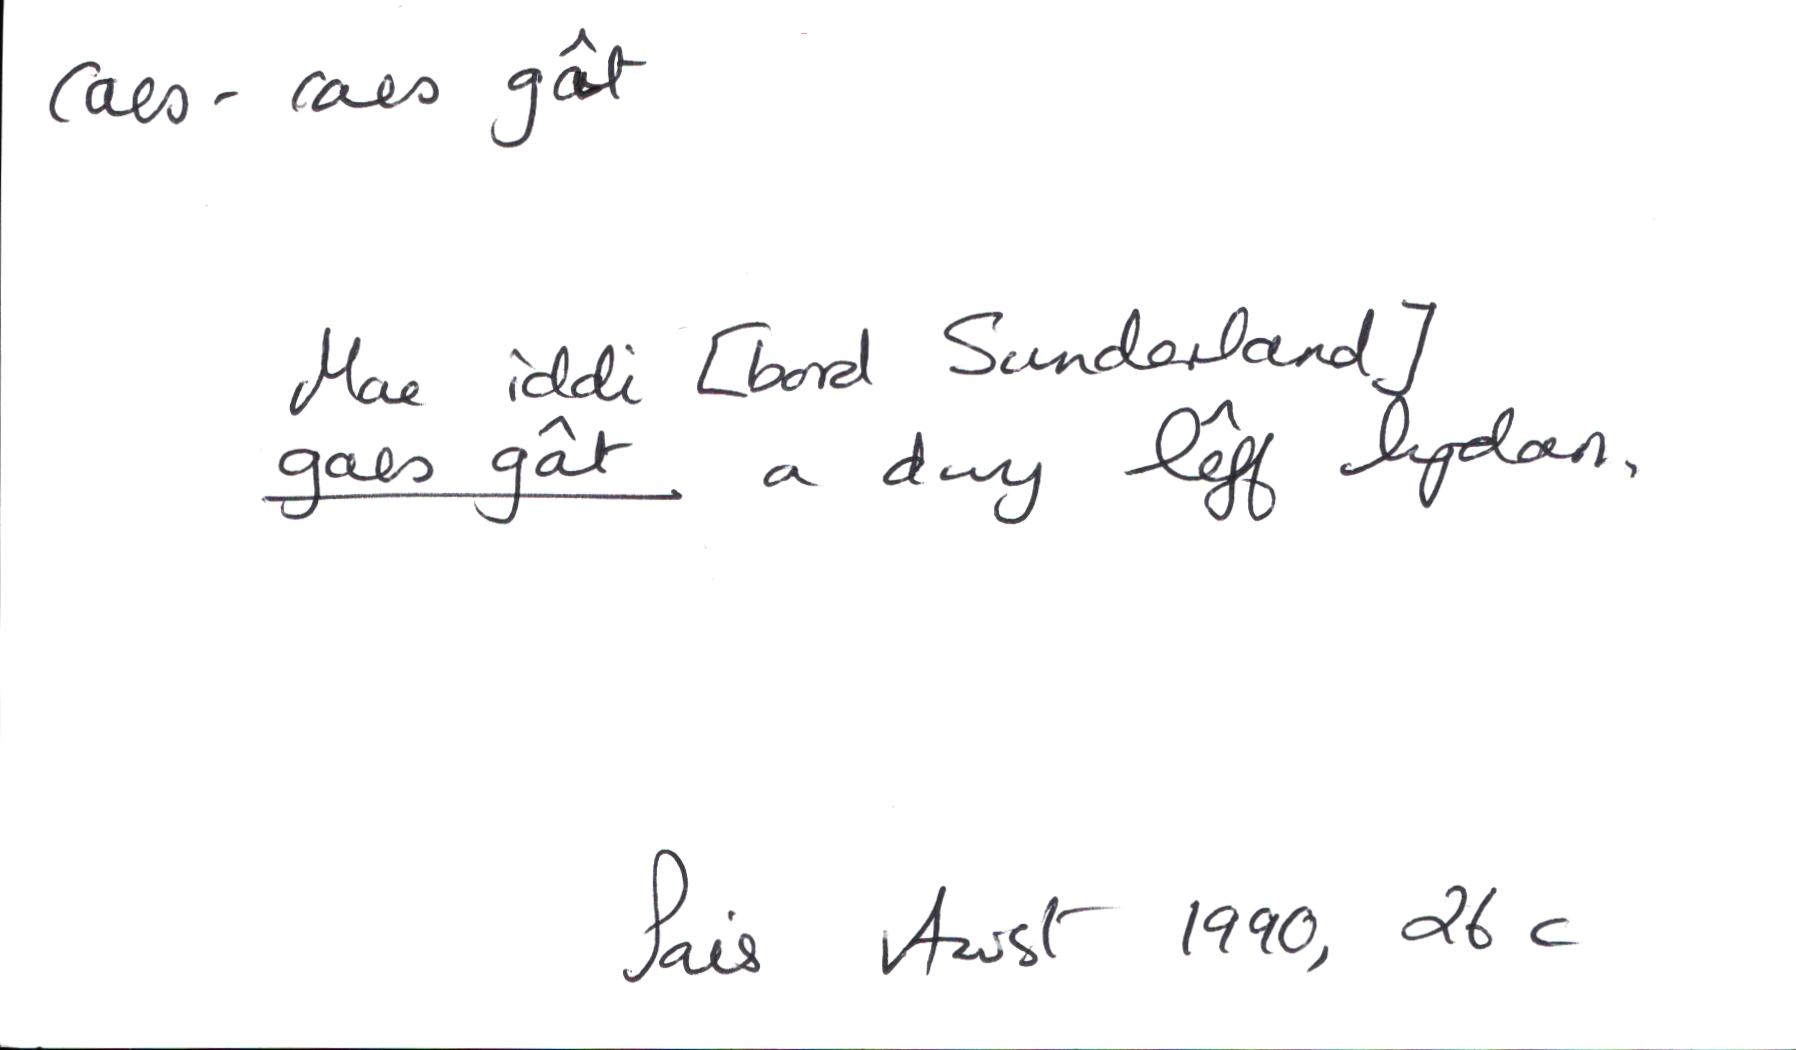 caes - caes gât
Mae iddi [bord Sunderland]
gaes gât a dwy lêff lydan.
Pais Awst 1990, 26 c